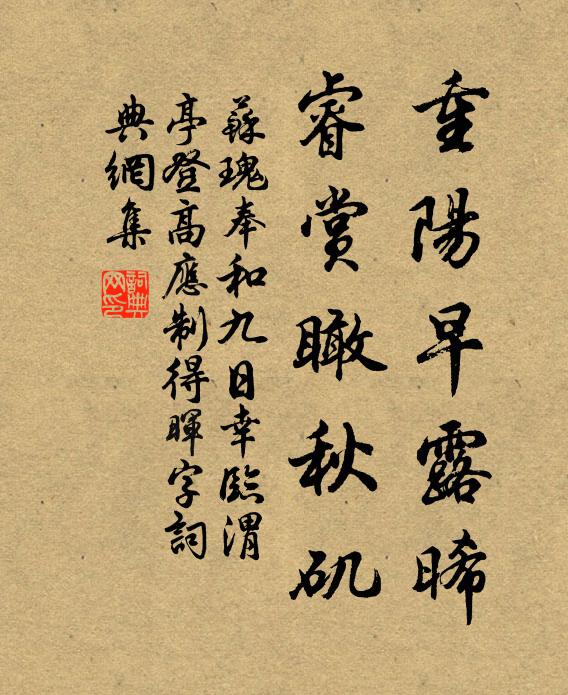 重陽早露晞
睿賞瞰秋矶
蘇瑰奉和九日幸臨渭
亭登高應制得暉字詞
典網集
詞典网印